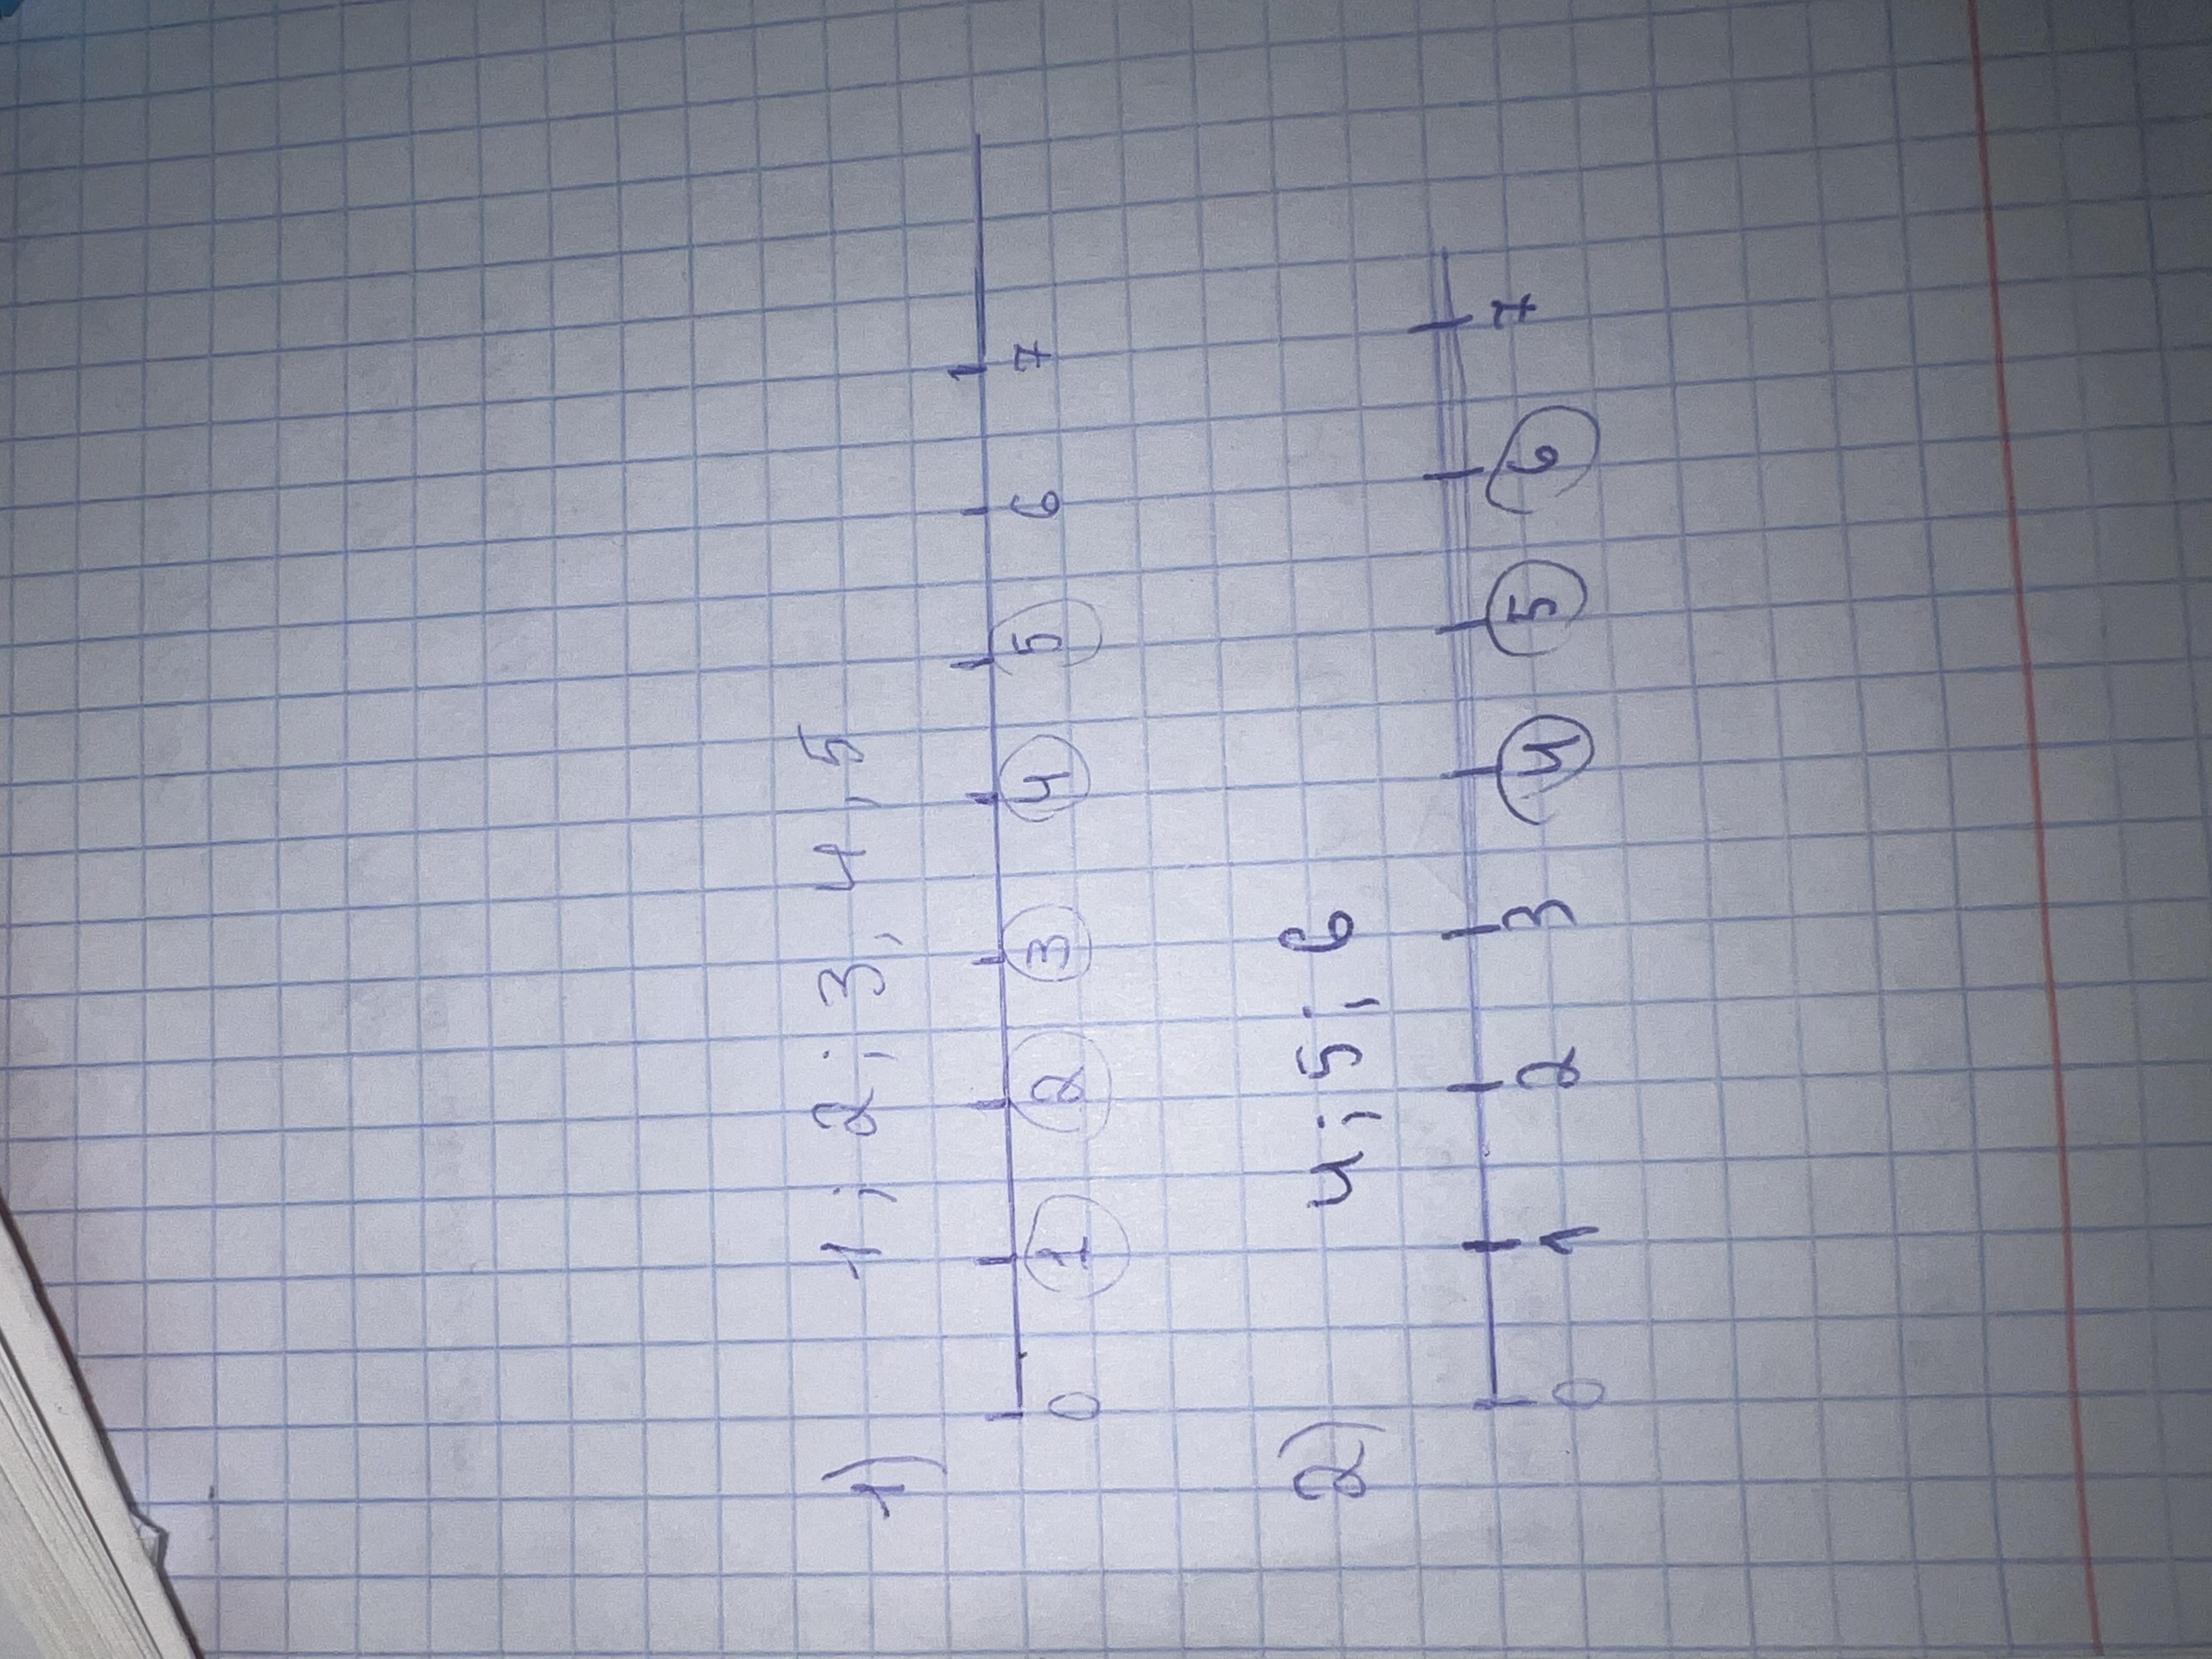 1) 1; 2; 3, 4, 5
0 1 2 3 4 5 6 7
2) 4; 5; 6
0 1 2 3 4 5 6 7